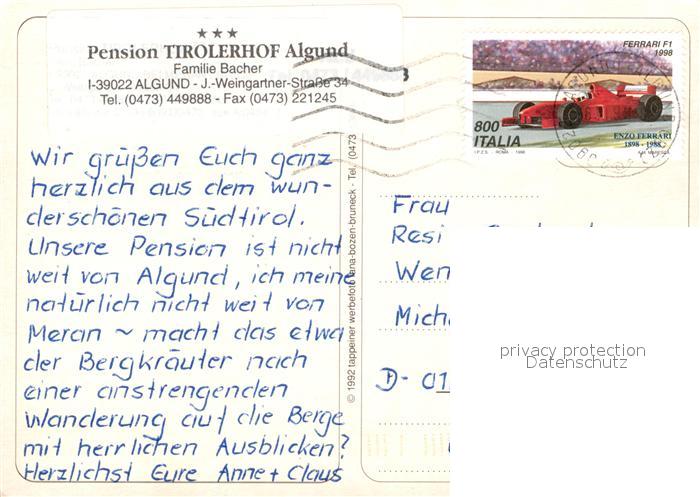 ★★★
Pension TIROLERHOF Algund
Familie Bacher
I-39022 ALGUND - J.-Weingartner-Straße 34
Tel. (0473) 449888 - Fax (0473) 221245
Wir grüßen Euch ganz
herzlich aus dem wun-
derschönen Südtirol.
Unsere Pension ist nicht
weit von Algund, ich meine
natürlich nicht weit von
Meran ~ macht das etwa
der Bergkräuter nach
einer anstrengenden
Wanderung auf die Berge
mit herrlichen Ausblicken?
Herzlichst Eure Anne + Claus
© 1992 tappeiner werbefoto lana-bozen-bruneck - Tel. (0473
FERRARI F1
1998
800
ITALIA
ENZO FERRARI
1898 - 1988
I.P.Z.S. ROMA 1998
Frau
Resi
Wen
Micha
D- 01
privacy protection
Datenschutz